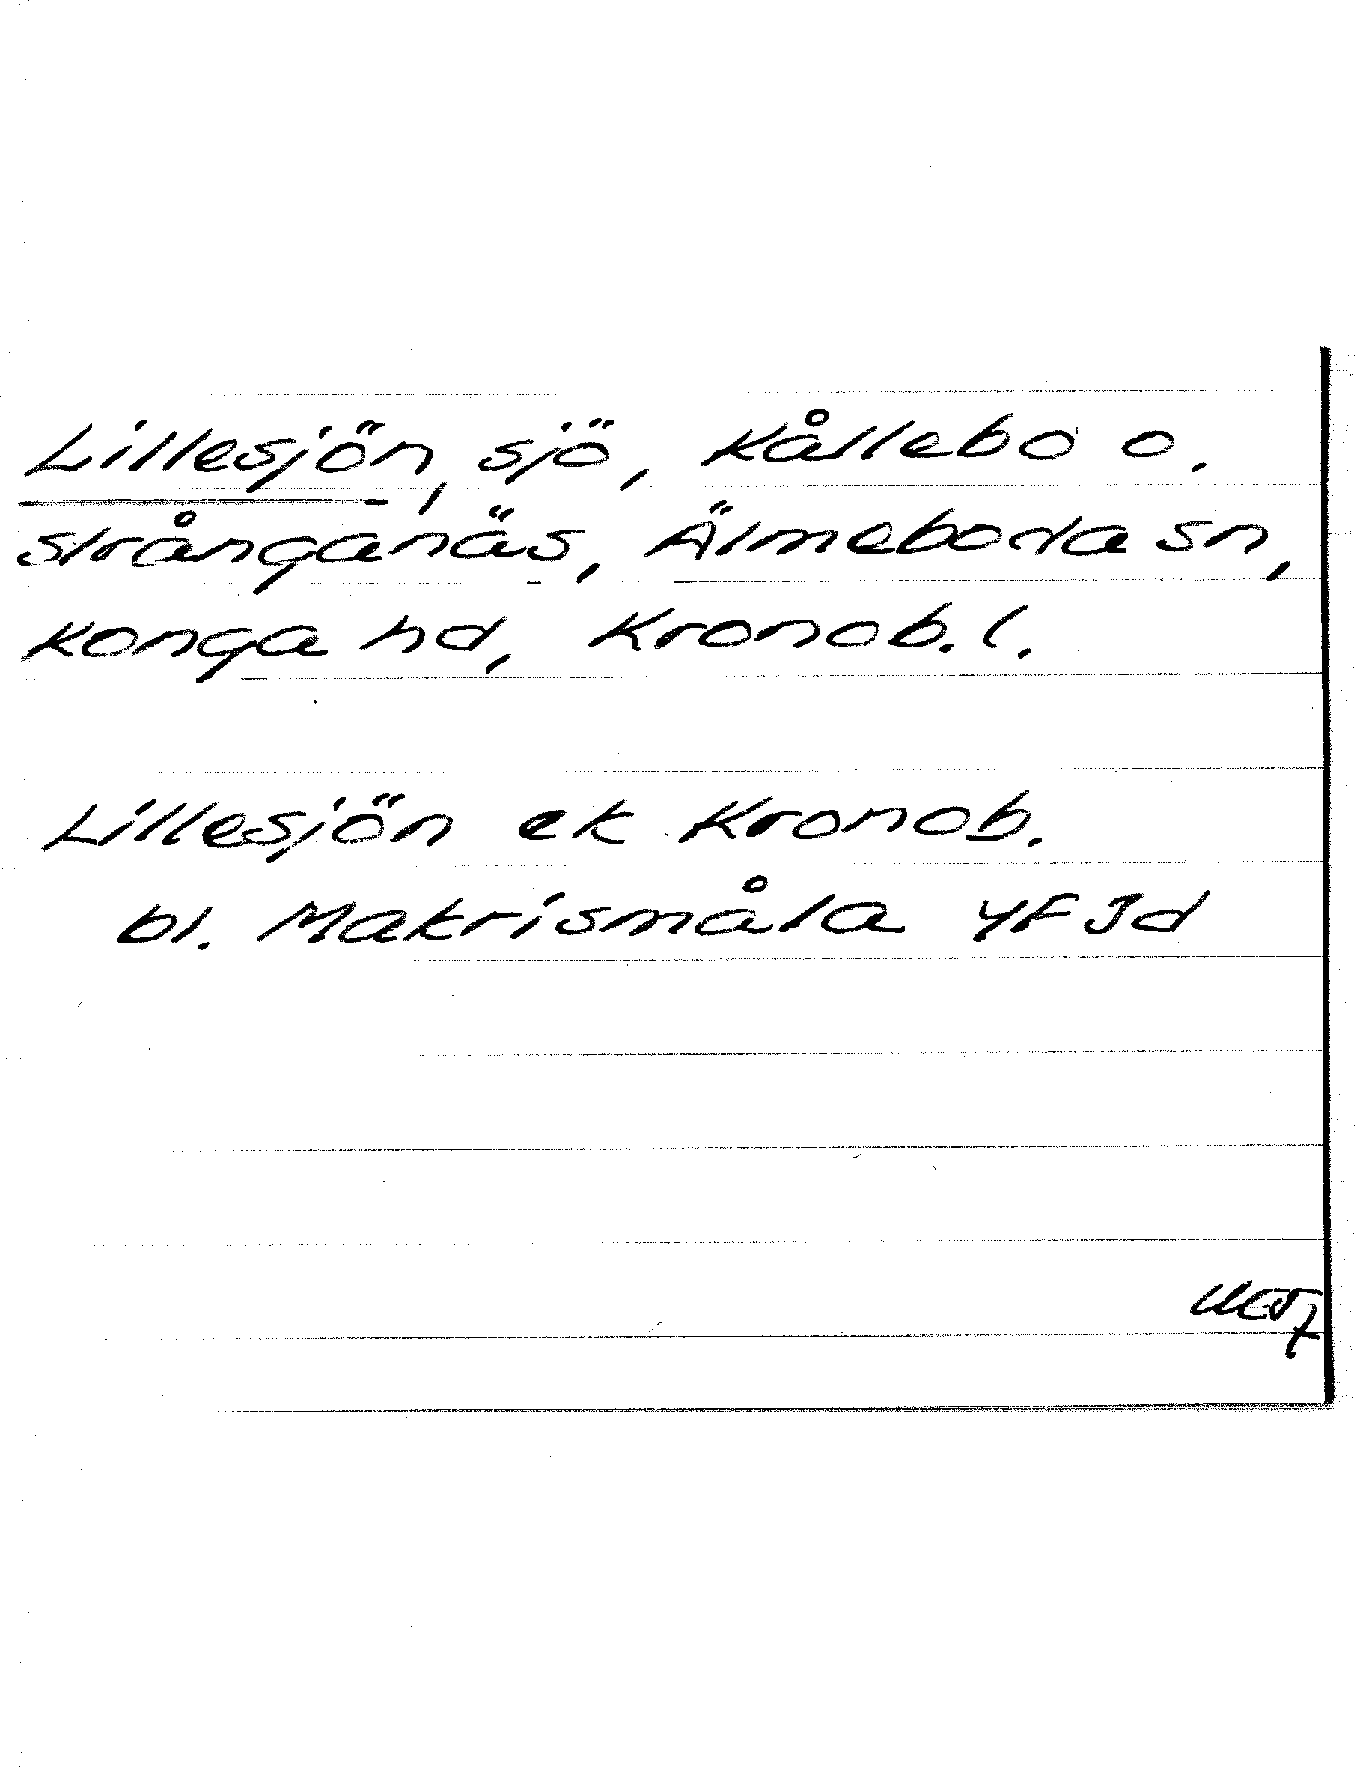 Lillesjön, sjö, Kållebo o.
Strånganäs, Älmeboda sn,
Konga hd, Kronob. l.
Lillesjön ek Kronob.
bl. Makrismåla 4F Jd